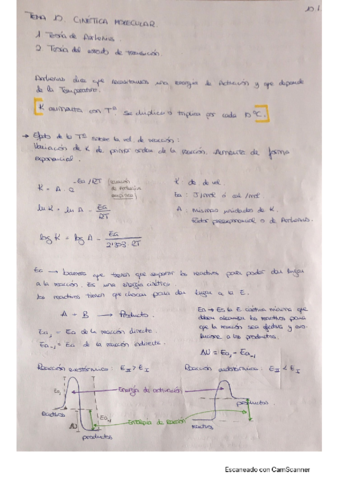 TEMA 10. CINÉTICA MOLECULAR
10.1
1. Teoría de Arrhenius
2. Teoría del estado de transición.
Arrhenius dice que necesitamos una energía de Activación y que depende
de la Temperatura.
K aumenta con Tª se duplica o triplica por cada 10 ºC.
→ Efecto de la Tª sobre la vel. de reacción:
Variación de K de primer orden de la reacción. Aumenta de forma
exponencial.
K = A · e^-Ea/RT
K cte de vel.
ln K = ln A - Ea/RT
Ea: J/mol o cal/mol.
log K = log A - Ea/2'303 RT
A: mismas unidades de K.
Factor preexponencial o de Arrhenius.
Ea → barrera que tienen que superar los reactivos para poder dar lugar
a la reacción. Es una energía cinética
los reactivos tienen que chocar para dar lugar a la E.
A - B → Producto
Ea1 = Ea de la reacción directa.
Ea-1 = Ea de la reacción indirecta.
Ea → Es la E cinética mínima que
deben alcanzar los reactivos para
que la reacción sea efectiva y
a los productos.
ΔU = Ea1 - Ea-1
Reacción exotérmica
Reacción endotérmica
Energía de activación
Ea1
Ea-1
reactivos
ΔU
productos
Entalpía de reacción
reactivos
productos
Escaneado con CamScanner